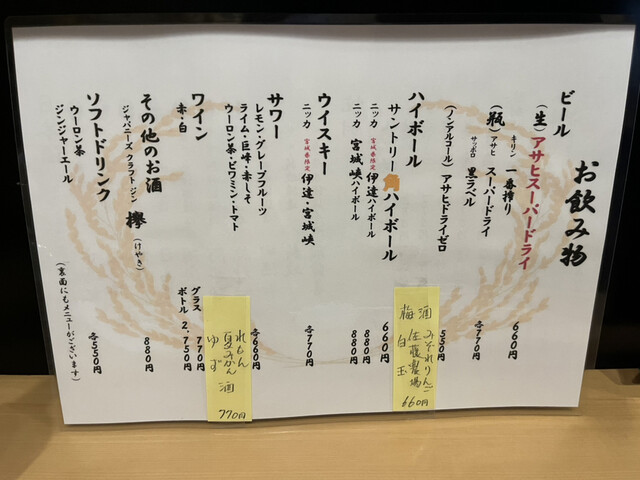 お飲み物
ビール
(生) アサヒスーパードライ 660円
(瓶) キリン 一番搾り
アサヒ スーパードライ
サッポロ 黒ラベル 各770円
(ノンアルコール) アサヒドライゼロ 550円
ハイボール
サントリー角ハイボール 660円
ニッカ 宮城県限定 伊達ハイボール 880円
ニッカ 宮城峡ハイボール 880円
ウイスキー
ニッカ 宮城県限定 伊達・宮城峡 各770円
サワー
レモン・グレープフルーツ
ライム・巨峰・赤しそ
ウーロン茶・ピワミン・トマト 各660円
ワイン
赤・白 グラス 770円
ボトル 2,750円
その他のお酒
ジャパニーズ クラフト ジン 欅 (けやき) 880円
ソフトドリンク
ウーロン茶
ジンジャーエール 各550円
(裏面にもメニューがございます)
梅酒 みぞれりんご
佐藤農場
白玉 660円
れもん
夏みかん
ゆず 酒 770円